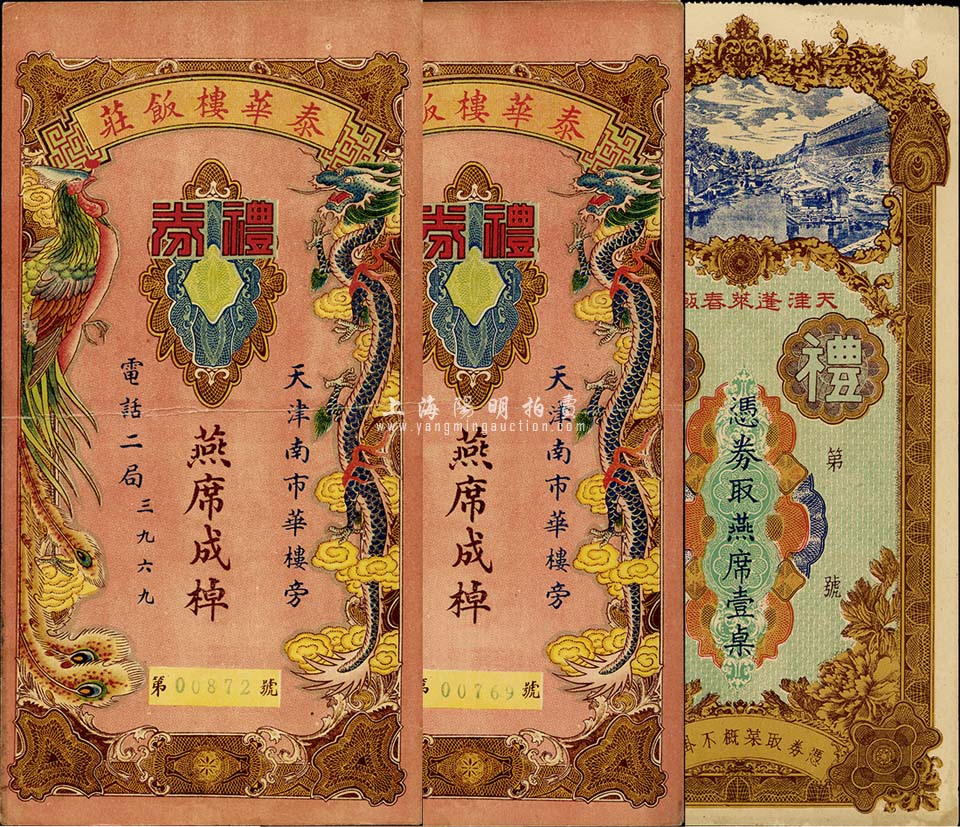 泰華樓飯莊
禮券
天津南市華樓旁
燕席成棹
電話二局三九六九
第00872號
泰華樓飯
禮券
天津南市華樓旁
燕席成棹
第00769號
天津蓬萊春飯
禮
第 號
憑券取燕席壹桌
憑券取菜概不
上海陽明拍賣
www.yangmingauction.com